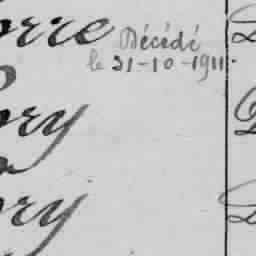 orre Décédé
le 31-10-1911.
ory
ory